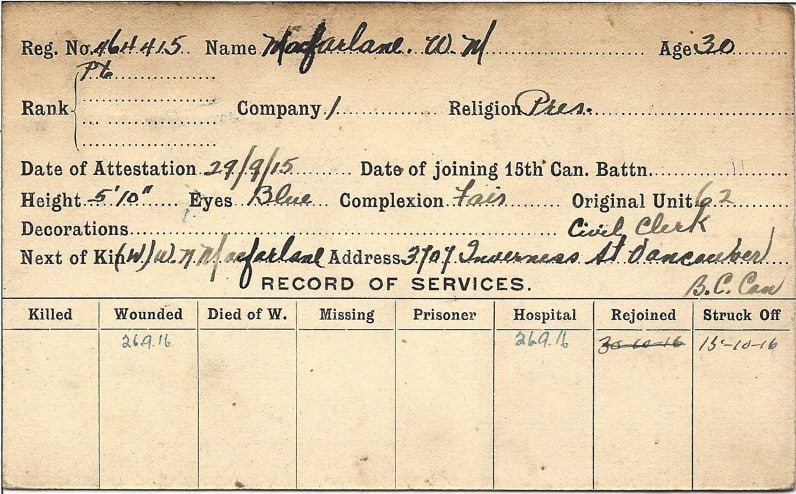 Reg. No. 464415 Name Macfarlane. W. M Age 30
Pte
Rank Company 1 Religion Pres.
Date of Attestation 29/9/15 Date of joining 15th Can. Battn.
Height 5'10" Eyes Blue Complexion Fair Original Unit 62
Decorations Civil Clerk
Next of Kin (W) W. N Macfarlane Address 3707 Inverness St Vancouver
RECORD OF SERVICES. B.C. Can
Killed Wounded Died of W. Missing Prisoner Hospital Rejoined Struck Off
26.9.16 26.9.16 30-10-16 15-10-16